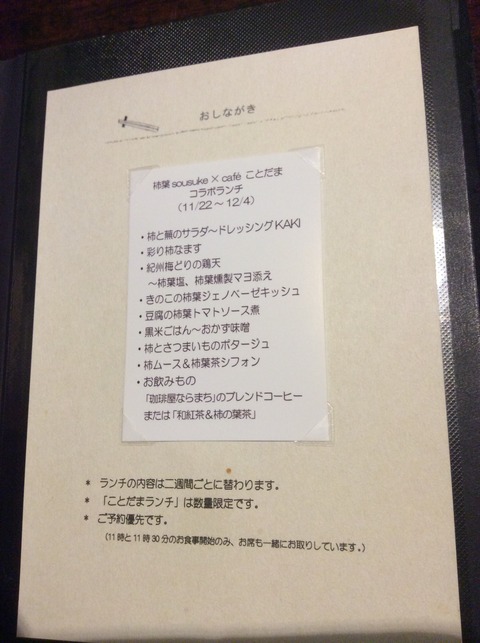 おしながき
柿葉sousuke × café ことだま
コラボランチ
(11/22～12/4)
・柿と蕪のサラダ～ドレッシングKAKI
・彩り柿なます
・紀州梅どりの鶏天
～柿葉塩、柿葉燻製マヨ添え
・きのこの柿葉ジェノベーゼキッシュ
・豆腐の柿葉トマトソース煮
・黒米ごはん～おかず味噌
・柿とさつまいものポタージュ
・柿ムース＆柿葉茶シフォン
・お飲みもの
「珈琲屋ならまち」のブレンドコーヒー
または「和紅茶＆柿の葉茶」
* ランチの内容は二週間ごとに替わります。
* 「ことだまランチ」は数量限定です。
* ご予約優先です。
(11時と11時30分のお食事開始のみ、お席も一緒にお取りしています。)